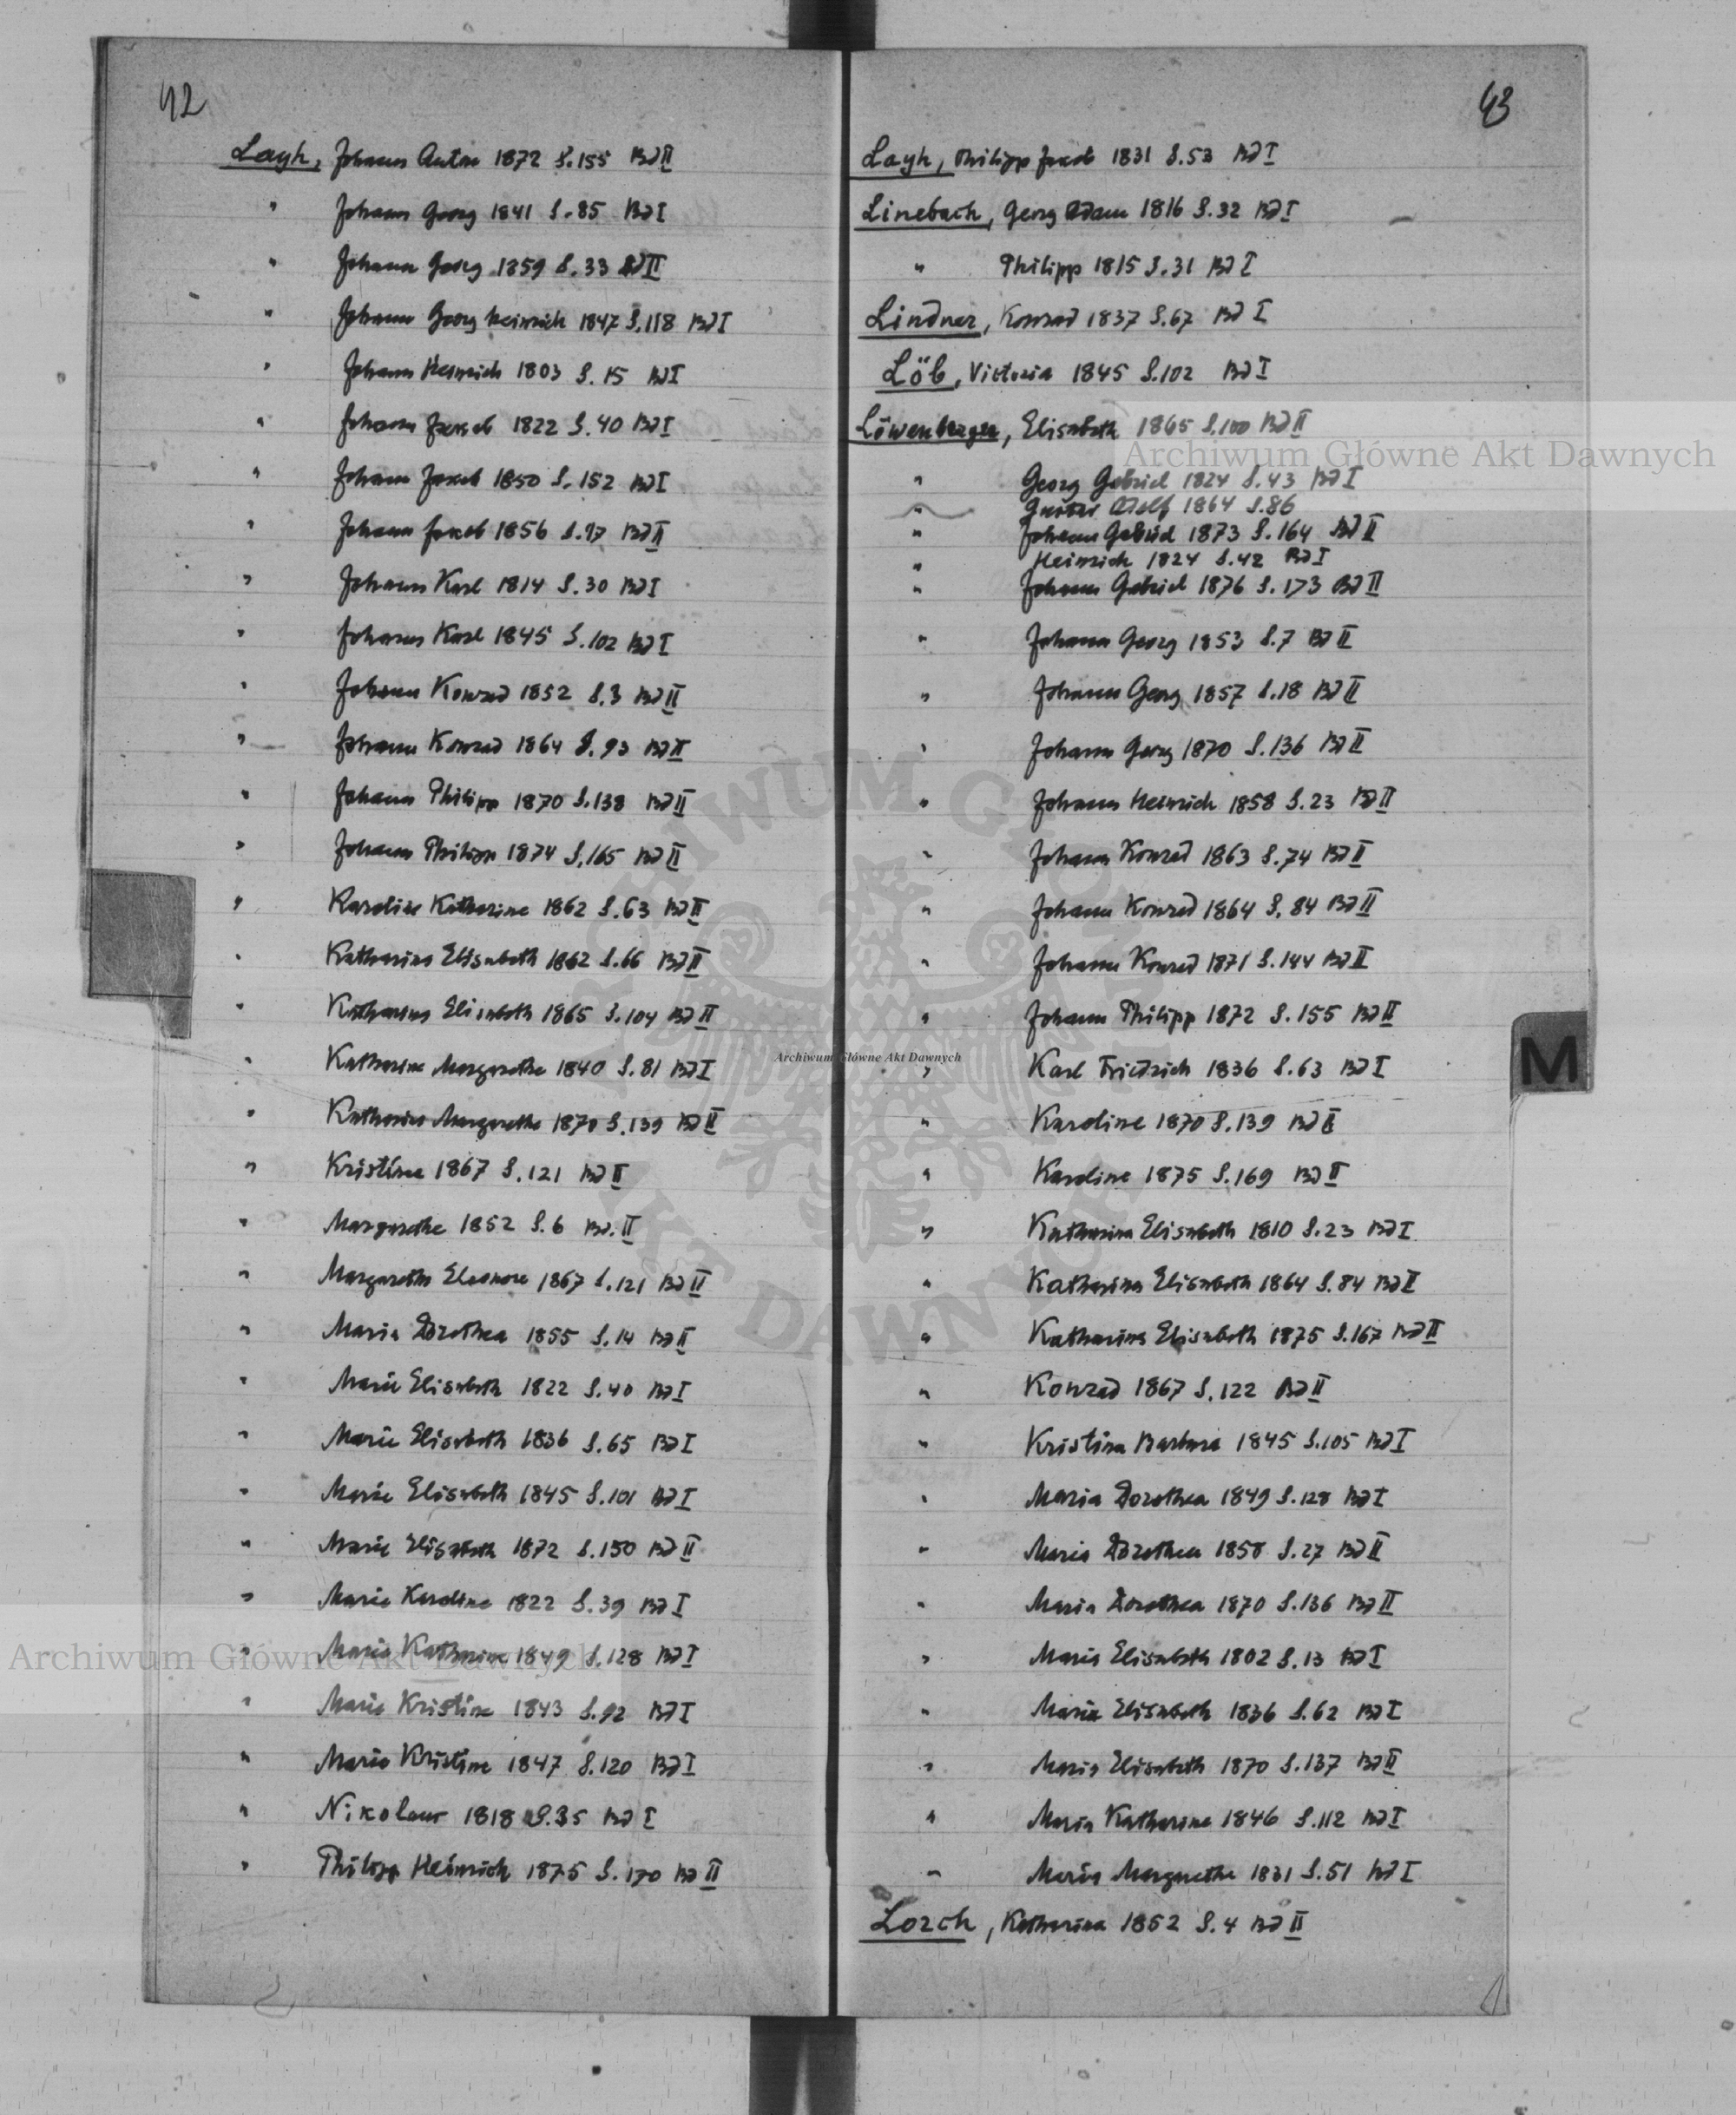 42
Layh, Johann Anton 1872 S.155 Bd II
" Johann Georg 1841 S.85 Bd I
" Johann Georg 1859 S.33 Bd II
" Johann Georg Heinrich 1847 S.118 Bd I
" Johann Heinrich 1803 S.15 Bd I
" Johann Jakob 1822 S.40 Bd I
" Johann Jakob 1850 S.152 Bd I
" Johann Jakob 1856 S.17 Bd II
" Johann Karl 1814 S.30 Bd I
" Johann Karl 1845 S.102 Bd I
" Johann Konrad 1852 S.3 Bd II
" Johann Konrad 1864 S.93 Bd II
" Johann Philipp 1870 S.138 Bd II
" Johann Philipp 1874 S.165 Bd II
" Karoline Katharine 1862 S.63 Bd II
" Katharina Elisabeth 1862 S.66 Bd II
" Katharina Elisabeth 1865 S.104 Bd II
" Katharina Margarethe 1840 S.81 Bd I
" Katharina Margarethe 1870 S.139 Bd II
" Kristina 1867 S.121 Bd II
" Margarethe 1852 S.6 Bd. II
" Margaretha Eleonore 1867 S.121 Bd II
" Maria Dorothea 1855 S.14 Bd II
" Marie Elisabeth 1822 S.40 Bd I
" Marie Elisabeth 1836 S.65 Bd I
" Marie Elisabeth 1845 S.101 Bd I
" Marie Elisabeth 1872 S.150 Bd II
" Marie Karoline 1822 S.39 Bd I
" Marie Katharine 1849 S.128 Bd I
" Marie Kristine 1843 S.92 Bd I
" Marie Kristine 1847 S.120 Bd I
" Nikolaus 1818 S.35 Bd I
" Philipp Heinrich 1875 S.170 Bd II
43
Layh, Philipp Jakob 1831 S.53 Bd I
Linebach, Georg Adam 1816 S.32 Bd I
" Philipp 1815 S.31 Bd I
Lindner, Konrad 1837 S.67 Bd I
Löb, Victoria 1845 S.102 Bd I
Löwenberger, Elisabeth 1865 S.100 Bd II
" Georg Gabriel 1824 S.43 Bd I
" Gustav Adolf 1864 S.86
" Johann Gabriel 1873 S.164 Bd II
" Heinrich 1824 S.42 Bd I
" Johann Gabriel 1876 S.173 Bd II
" Johann Georg 1853 S.7 Bd II
" Johann Georg 1857 S.18 Bd II
" Johann Georg 1870 S.136 Bd II
" Johann Heinrich 1858 S.23 Bd II
" Johann Konrad 1863 S.74 Bd II
" Johann Konrad 1864 S.84 Bd II
" Johann Konrad 1871 S.144 Bd II
" Johann Philipp 1872 S.155 Bd II
" Karl Friedrich 1836 S.63 Bd I
" Karoline 1870 S.139 Bd II
" Karoline 1875 S.169 Bd II
" Katharina Elisabeth 1810 S.23 Bd I
" Katharina Elisabeth 1864 S.84 Bd II
" Katharina Elisabeth 1875 S.167 Bd II
" Konrad 1867 S.122 Bd II
" Kristina Barbara 1845 S.105 Bd I
" Maria Dorothea 1849 S.128 Bd I
" Maria Dorothea 1858 S.27 Bd II
" Maria Dorothea 1870 S.136 Bd II
" Maria Elisabeth 1802 S.13 Bd I
" Maria Elisabeth 1836 S.62 Bd I
" Maria Elisabeth 1870 S.137 Bd II
" Maria Katharina 1846 S.112 Bd I
" Maria Margarethe 1831 S.51 Bd I
Lorch, Katharina 1852 S.4 Bd II
M
Archiwum Główne Akt Dawnych
Archiwum Główne Akt Dawnych
Archiwum Główne Akt Dawnych
ARCHIWUM GŁÓWNE AKT DAWNYCH